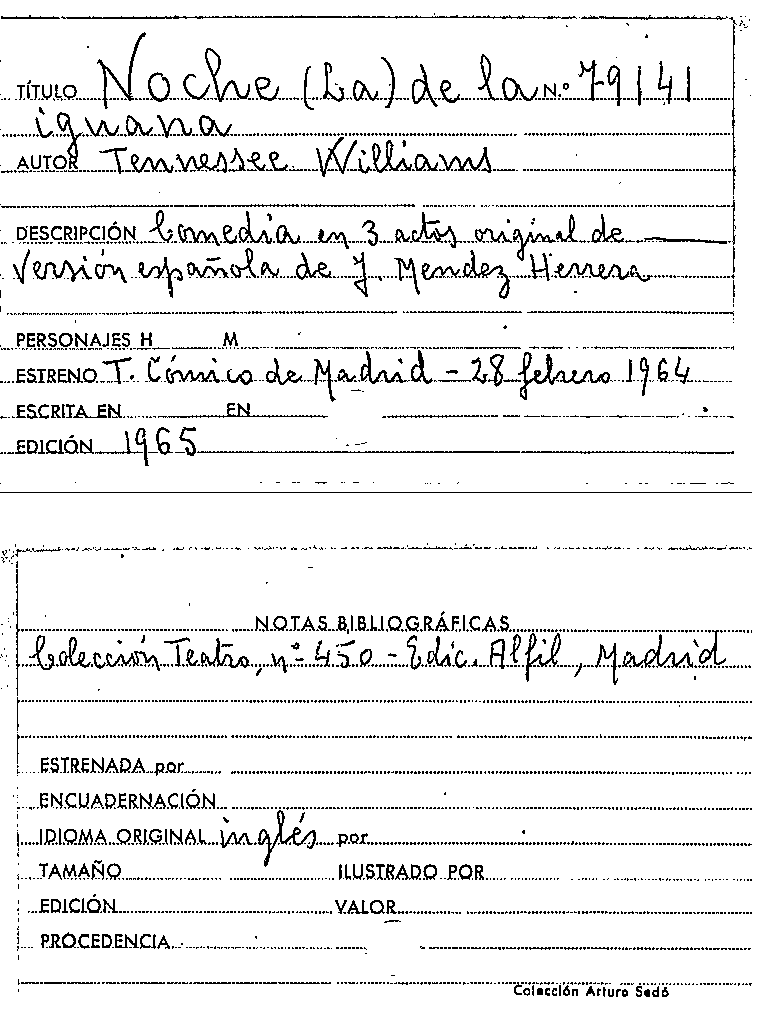 TÍTULO Noche (La) de la N.º 79141
iguana
AUTOR Tennessee Williams
DESCRIPCIÓN Comedia en 3 actos original de
Versión española de J. Mendez Herrera
PERSONAJES H M
ESTRENO T. Cómico de Madrid - 28 febrero 1964
ESCRITA EN EN
EDICIÓN 1965
NOTAS BIBLIOGRÁFICAS
Colección Teatro, nº 450 - Edic. Alfil, Madrid
ESTRENADA por
ENCUADERNACIÓN
IDIOMA ORIGINAL inglés por
TAMAÑO ILUSTRADO POR
EDICIÓN VALOR
PROCEDENCIA
Colección Arturo Sedó